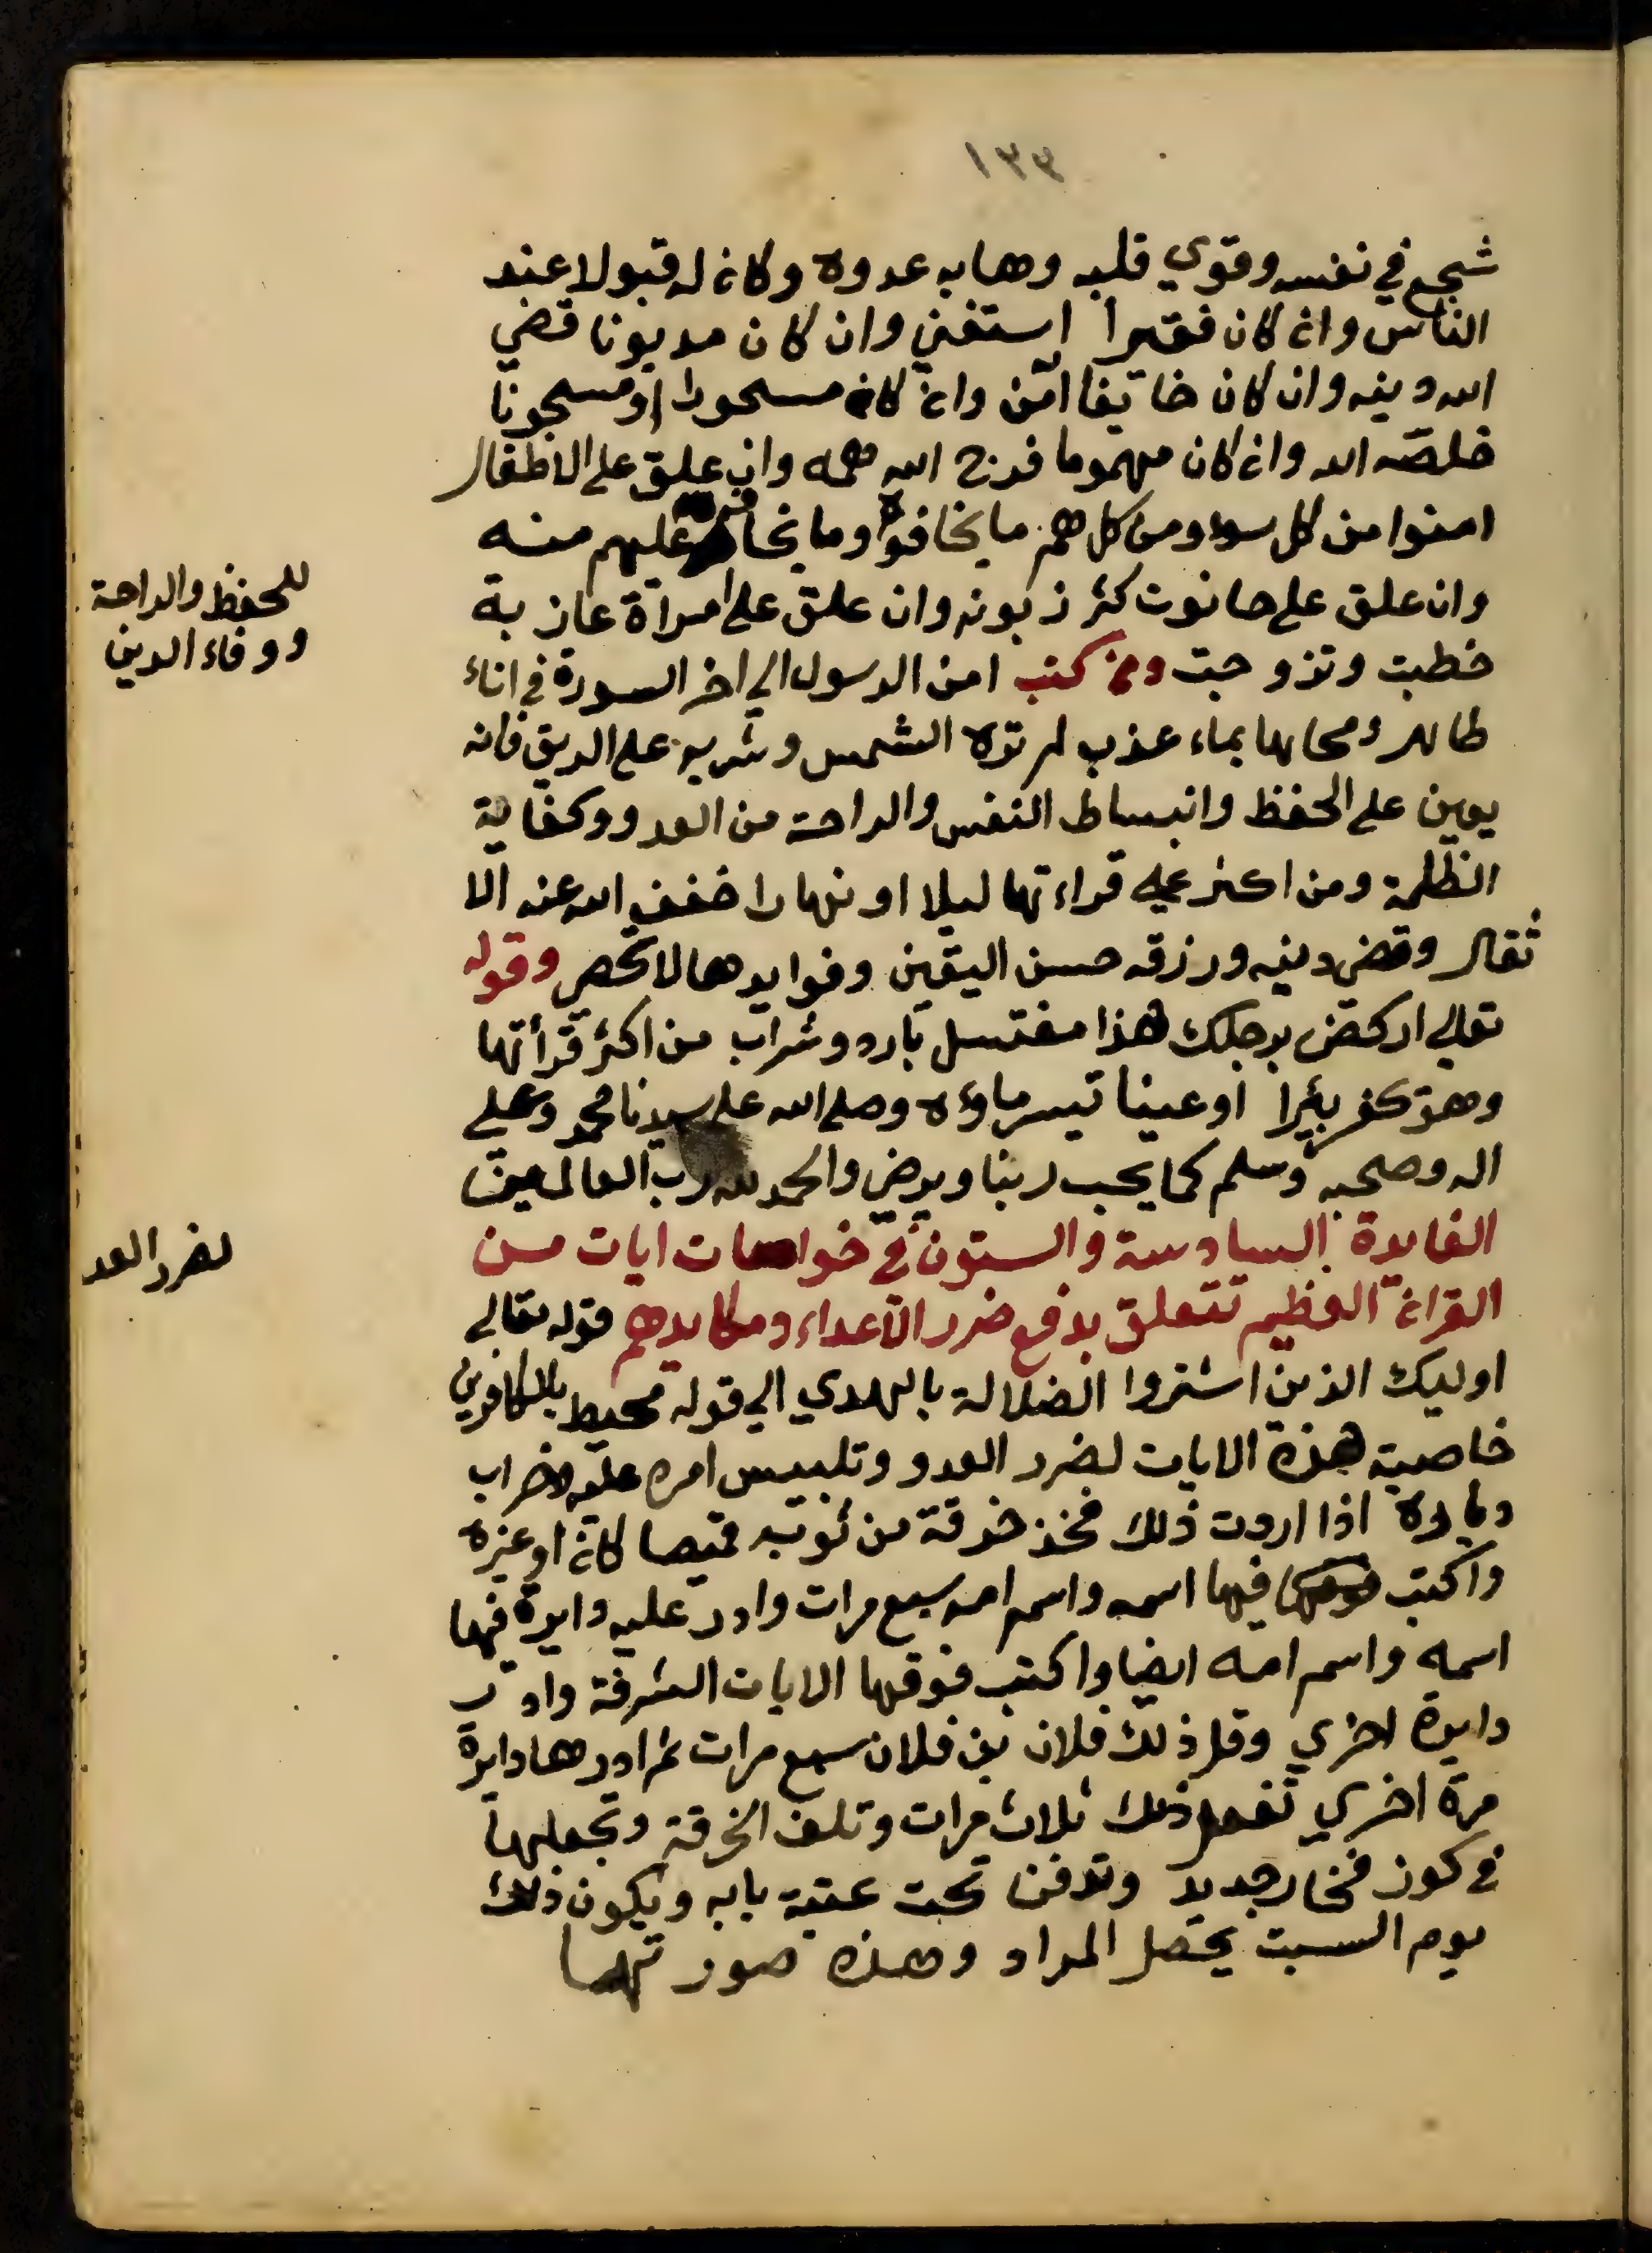 ١٣٣
شجع في نفسه وقوي قلبه وهابه عدوه وكان له قبولا عند
الناس وان كان فقيرا استغني وان كان مديونا قضي
الله دينه وان كان خايفا امن وان كان مسحورا او مسجونا
خلصه الله وان كان مهموما فرج الله همه وان علق على الاطفال
امنوا من كل سوء ومن كل هم ما يخافوه وما يخاف عليهم منه
وان علق على حانوت كثر زبونه وان علق على امراة عازبة
خطبت وتزوجت ومن كتب امن الرسول الي اخر السورة في اناء
طاهر ومحاها بماء عذب لم تره الشمس وشربه على الريق فانه
يعين على الحفظ وانبساط النفس والراحة من العدو وكفاية
الظلمة ومن اكثر قراءتها ليلا او نهارا خفف الله عنه الا
ثقال وقضى دينه ورزقه حسن اليقين وفوايدها لا تحصي وقوله
تعالي اركض برجلك هذا مغتسل بارد وشراب من اكثر قرأتها
وهو يحفر بيرا او عينا تيسر ماؤه وصلى الله على سيدنا محمد وعلي
اله وصحبه وسلم كما يحب ربنا ويرضي والحمد لله رب العالمين
الفايدة السادسة والستون في خواصات ايات من
القران العظيم تتعلق بدفع ضرر الاعداء ومكايدهم قوله تعالي
اوليك الذين اشتروا الضلالة بالهدي الي قوله محيط بالكافرين
خاصية هذه الايات لضرر العدو وتلبيس امره عليه وخراب
دياره اذا اردت ذلك فخذ خرقة من ثوبه قميصا كان او غيره
واكتب فيها اسمه واسم امه سبع مرات وادر عليه دايرة فيها
اسمه واسم امه ايضا واكتب فوقها الايات الشرفة وادر
دايرة اخري وقل ذلك فلان بن فلان سبع مرات ثم ادرها دايرة
مرة اخري تفعل ذلك ثلاث مرات وتلف الخرقة وتجعلها
في كوز فخار جديد وتدفن تحت عتبة بابه ويكون ذلك
يوم السبت يحصل المراد وهذه صورتها
للحفظ والراحة
ووفاء الدين
لضرر العد